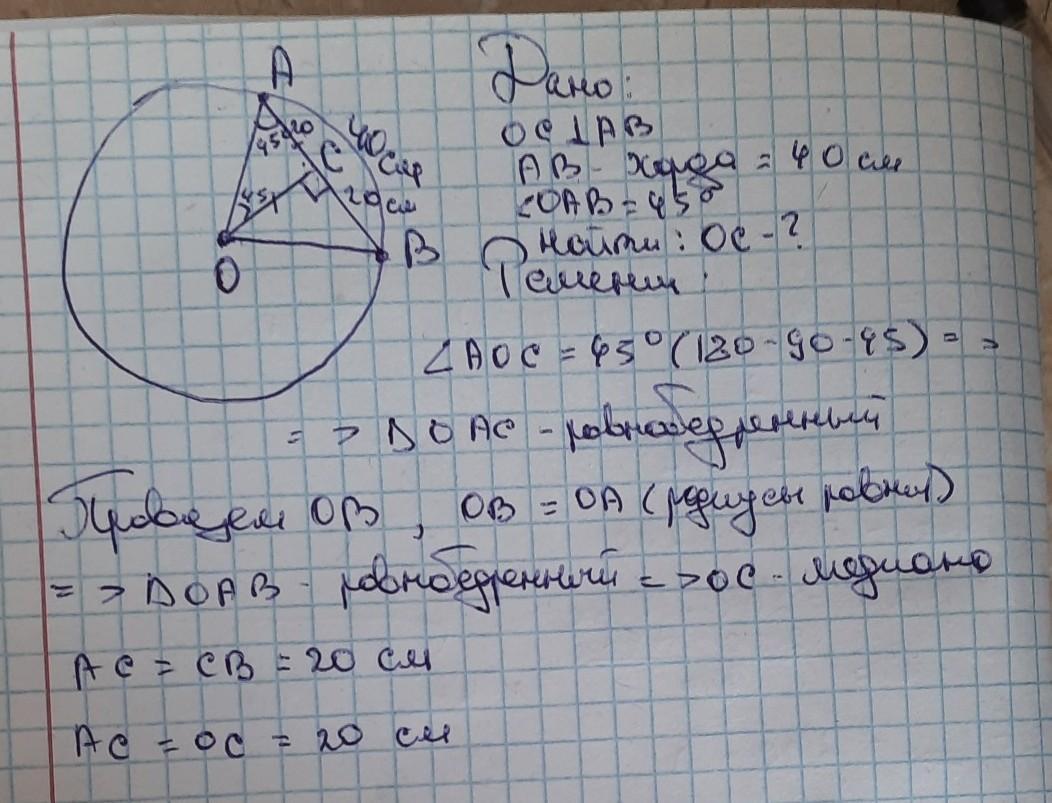 A
Дано:
20
40 см
45°
OC⊥AB
C
AB - хорда = 40 см
45
20 см
∠OAB = 45°
Найти: OC - ?
B
O
Решении:
∠AOC = 45° (180 - 90 - 45) = >
= > ΔOAC - равнобедренный
Проведем OB, OB = OA (радиусы равны)
= > ΔOAB - равнобедренный = > OC - медиана
AC = CB = 20 см
AC = OC = 20 см